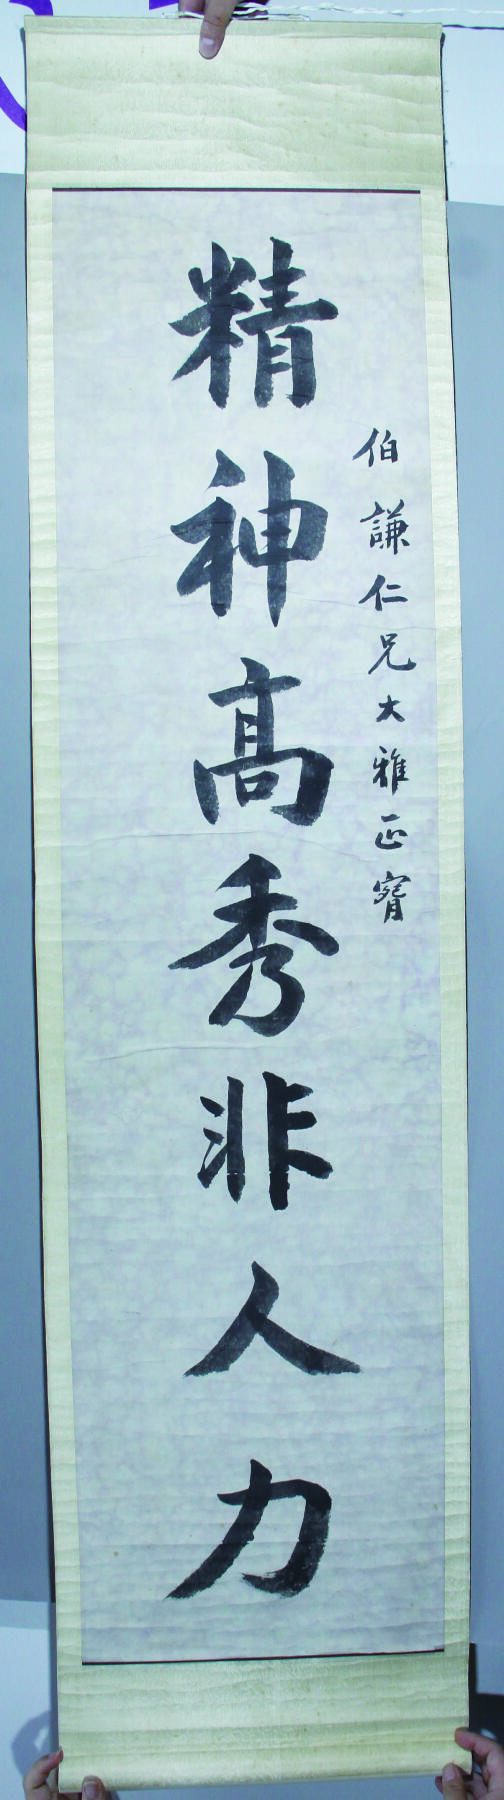 伯謙仁兄大雅正
精神髙秀非人力